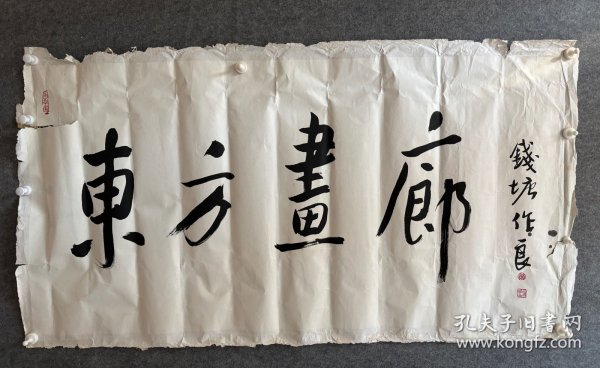 東方畫廊
錢塘作良
孔夫子旧書网
www.kongfz.com